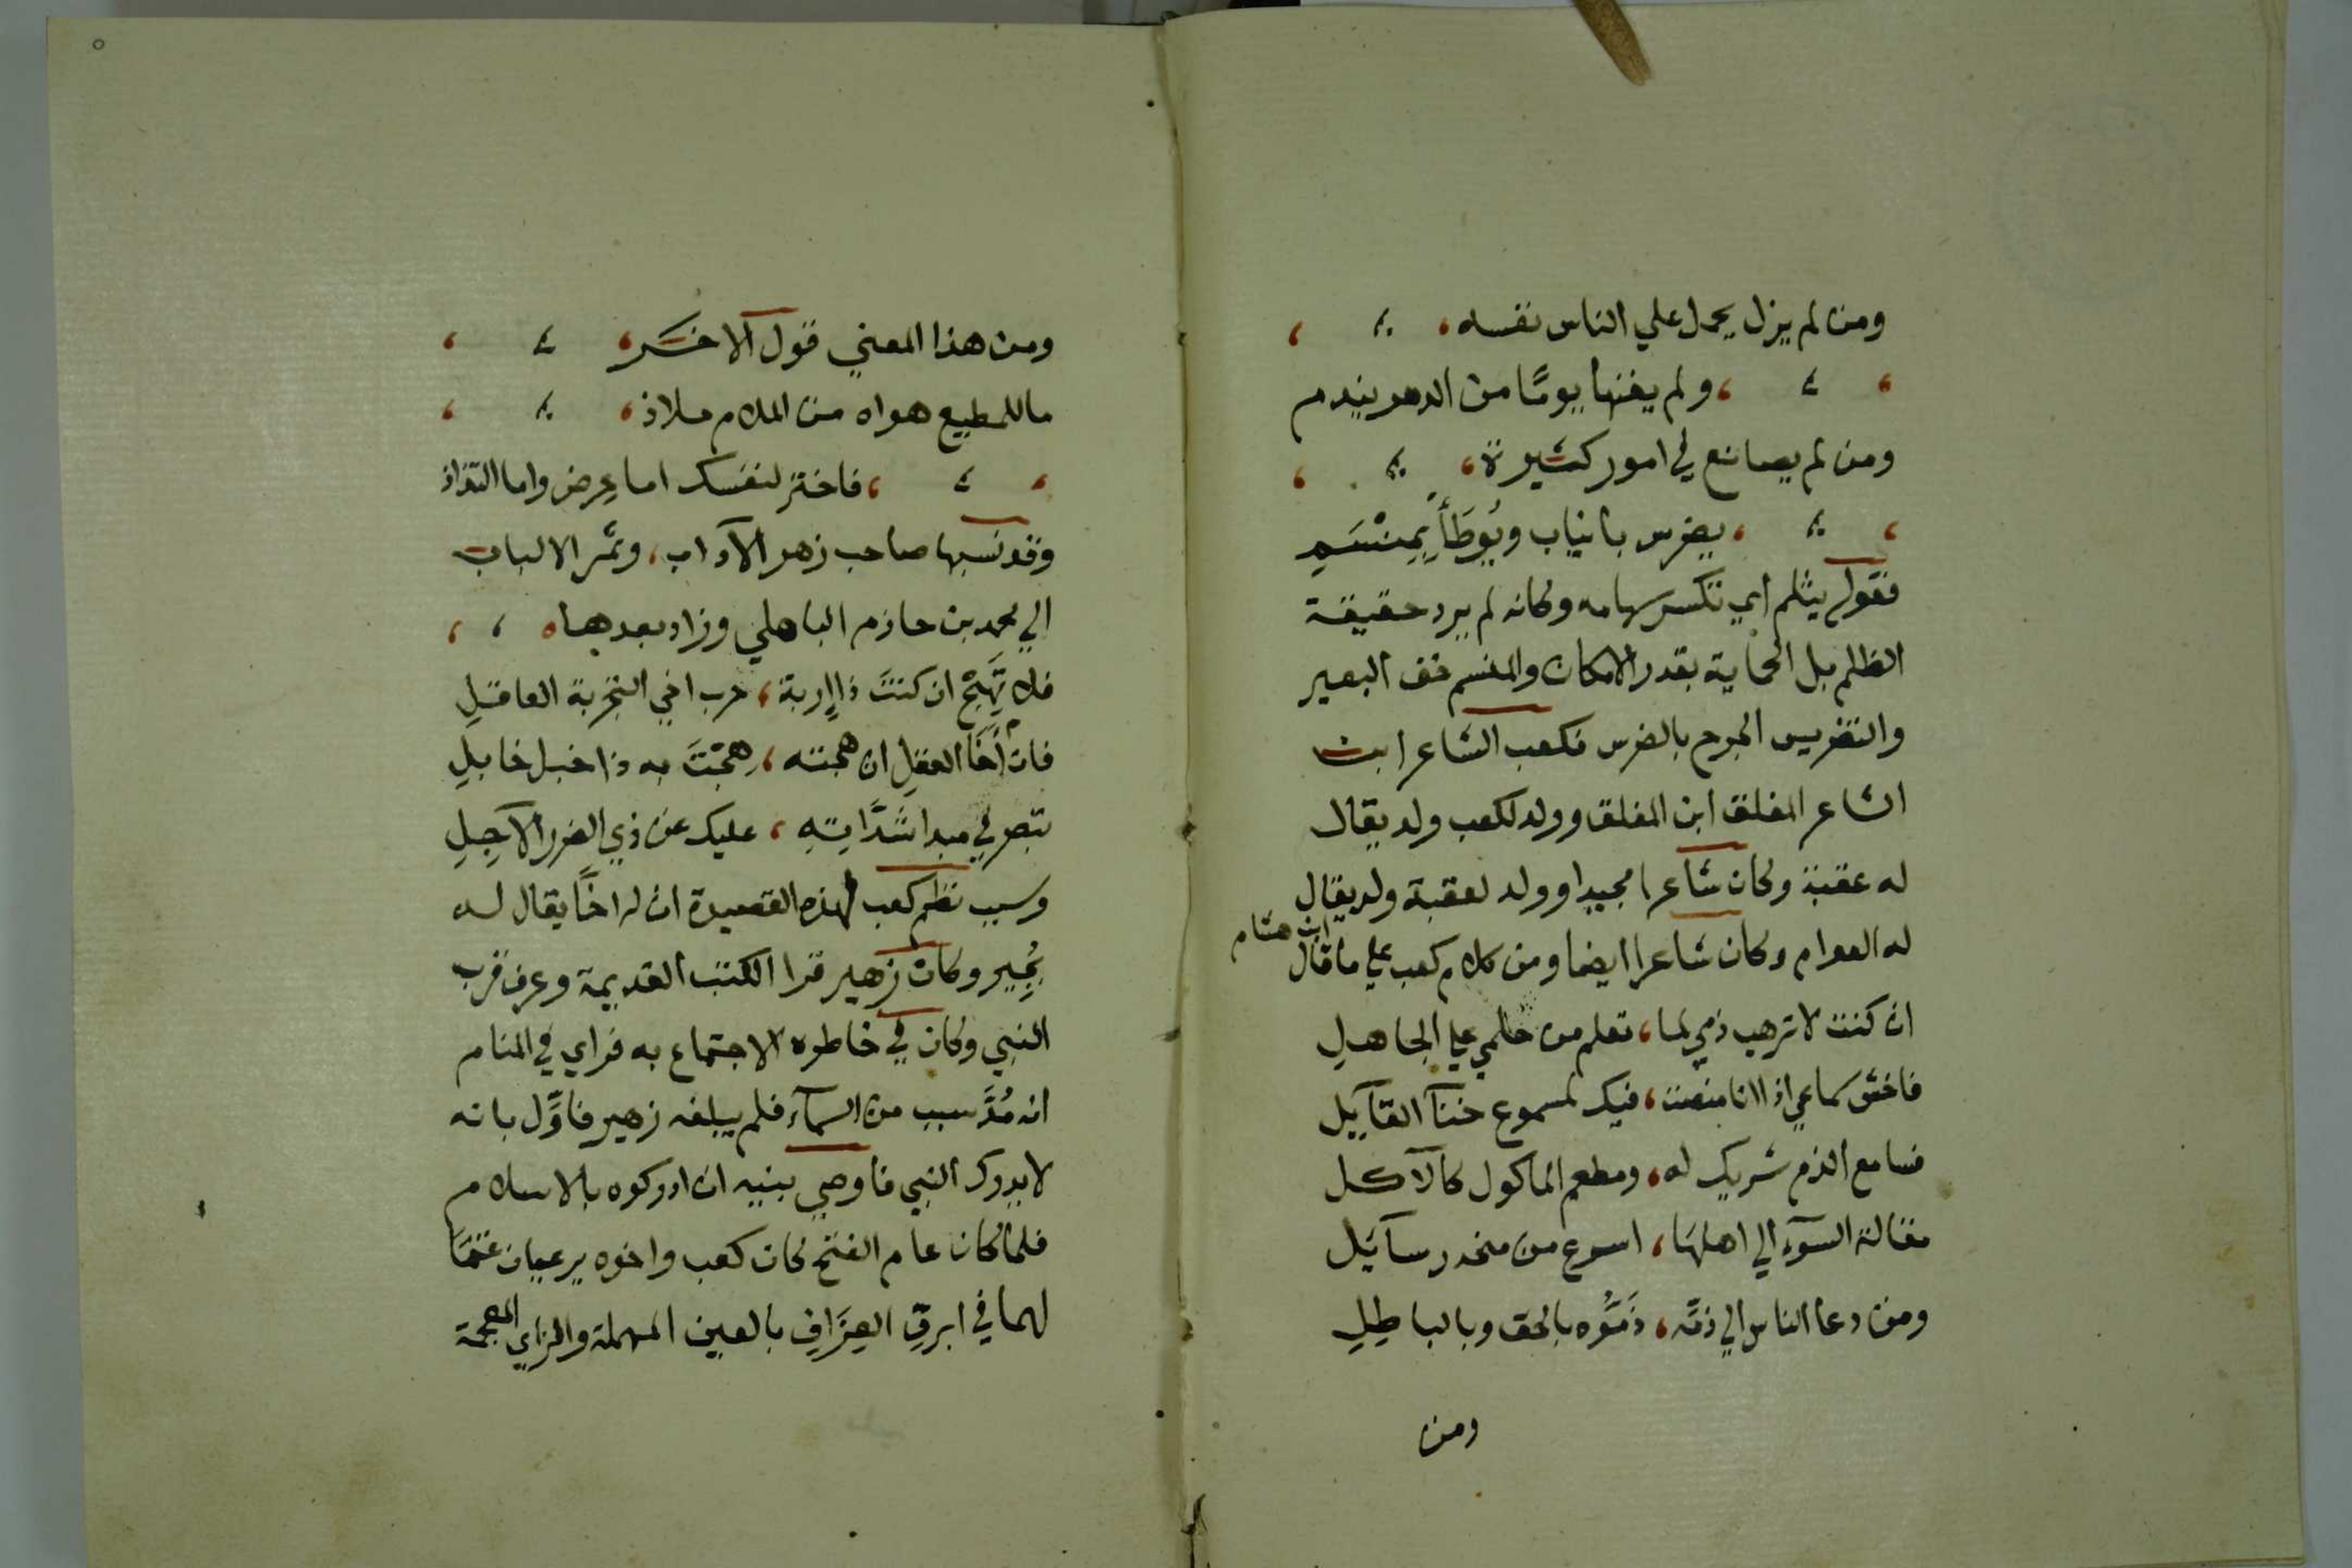 ومن لم يزل يحمل علي الناس نفسه،
، ولم يغنها يومًا من الدهر يندم
ومن لم يصانع في امور كثيرة،
، يضرس بانياب ويُوطَأ بِمِنْسَمِ
فقوله يثلم اي تكسر سهامه وكانه لم يرد حقيقة
الظلم بل الحماية بقدر الامكان والمنسم خف البعير
والتضريس الجرح بالضرس فكعب الشاعر ابن
الشاعر المفلق ابن المفلق وولد لكعب ولد يقال
له عقبة وكان شاعرا مجيدا وولد لعقبة ولد يقال
له العوام وكان شاعرا ايضا ومن كلام كعب علي ما قال ابن هشام
ان كنت لا ترهب ذمي لما، تعلم من حلمي علي الجاهلِ
فاخش سماعي اذا انا منصت، فيك لمسموع خنآ القآيل
فسامع الذم شريك له، ومطعم الماكول كالآكل
مقالة السوٓء الي اهلها، اسرع من منحدر سآئل
ومن دعا الناس الي ذمّه، ذَمُّوه بالحق وبالباطِلِ
ومن
٥
ومن هذا المعني قول الاخر،
ما للمطيع هواه من الملام ملاذ،
، فاختر لنفسك اما عِرض واما التذاذ
وقد نسبها صاحب زهر الآداب، وثمر الالباب
الي محمد بن حازم الباهلي وزاد بعدهما
فلا تَهِجْ ان كنتَ ذا إربة، حرب اخي التجربة العاقلِ
فان أخَا العقلِ ان هجته، هِجْتَ به ذا خبل خابلِ
تبصر في مبدا شدَّاتِهِ، عليك عن ذي الضرر الآجِلِ
وسبب نظم كعب لهذه القصيدة ان له اخًا يقال له
بُجِير وكان زهير قرا الكتب القديمة وعرف قرب
النبي وكان في خاطره الاجتماع به فراي في المنام
انه مُدَّ سبب من السمآء فلم يبلغه زهير فاوَّل بانه
لا يدرك النبي فاوصي بنيه ان ادركوه بالاسلام
فلما كان عام الفتح كان كعب واخوه يرعيان غنمًا
لهما في ابرقِ العِزَافِ بالعين المهملة والزاي المعجمة